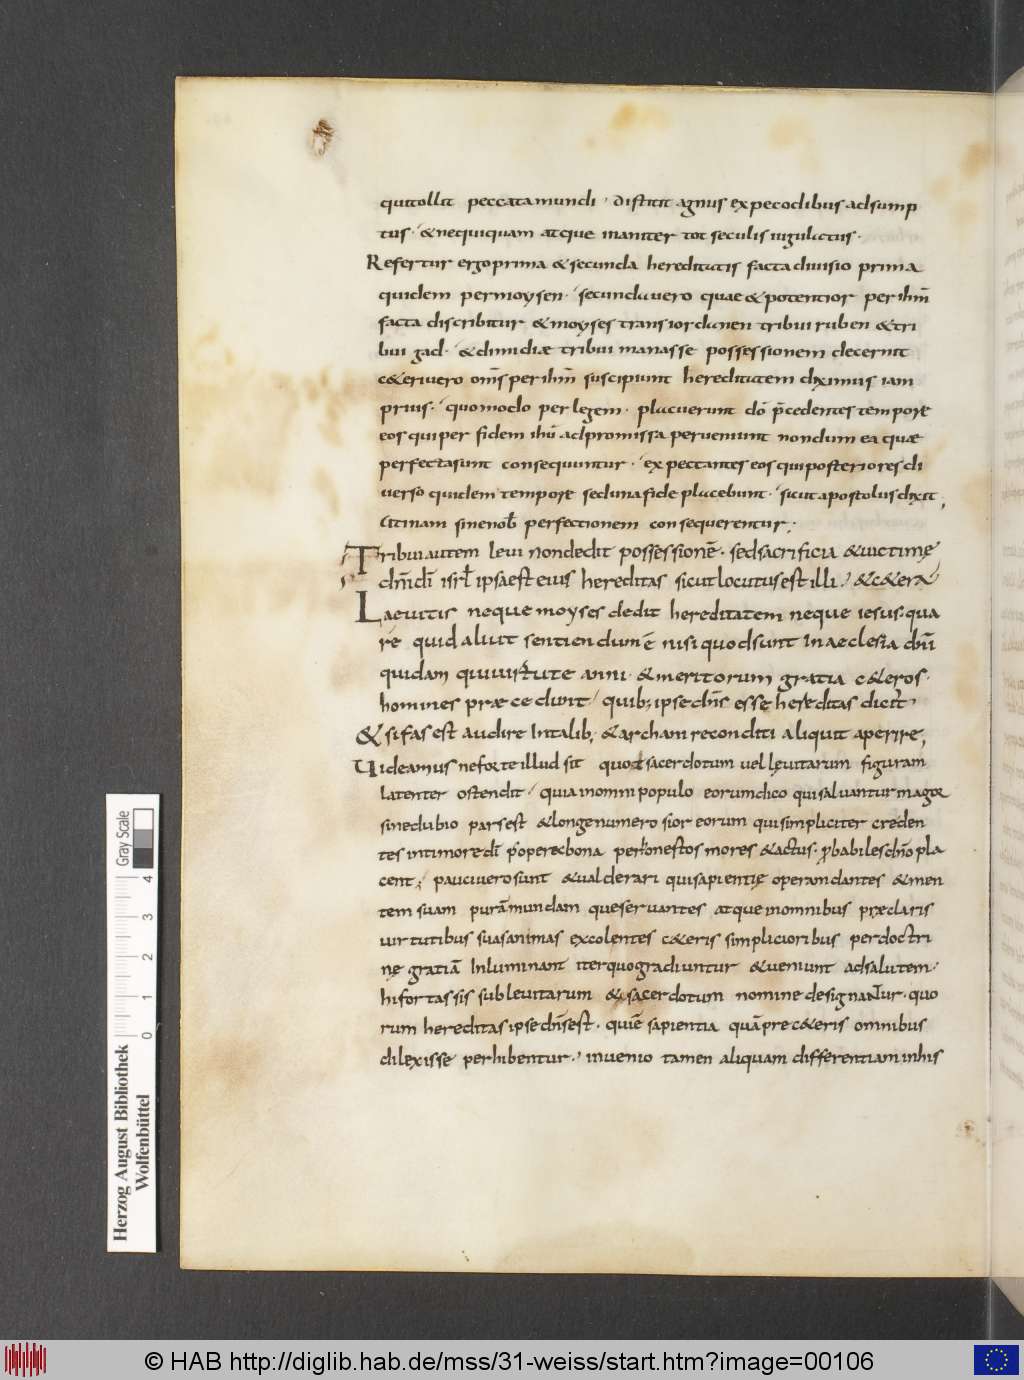 qui tollit peccata mundi, distitit agnus ex pecodibus adsump
tus. & nequiquam atque inaniter tot seculis iugulatus.
Refertur ergo prima & secunda hereditatis facta divisio prima
quidem per moysen. secunda vero quae & potentior per ihm̄
facta discribitur & moyses trans iordanen tribui ruben & tri
bui gad. & dimidiæ tribui manasse possessionem decernit
c&eri vero om̄s per ihm̄ suscipiunt hereditatem diximus iam
prius. quomodo per legem. placuerunt dō p̄cedentes tempore
eos qui per fidem ihū ad promissa perveniunt nondum ea quæ
perfecta sunt consequuntur. expectantes eos qui posteriores di
verso quidem tempore sed una fide placebunt. sicut apostolus dixit,
Ut inam sine nob̄ perfectionem consequerentur.
Tribui autem levi non dedit possessionē. sed sacrificia & victimę
dn̄i dī isrł ipsa est eius hereditas sicut locutus est illi. & c&era
Laevitis neque moyses dedit hereditatem neque iesus. qua
re quid aliut sentiendum ē nisi quod sunt In aeclesia dn̄i
quidam qui virtute anni. & meritorum gratia c&eros.
homines præcedunt, quib; ipse dn̄s esse hereditas dicit̄
& si fas est audire In talib; & archam reconditi aliquit aperire,
Videamus ne forte illud sit quod sacerdotum vel lęvitarum figuram
latenter ostendit. quia in omni populo eorum dico qui salvantur magor
sine dubio pars est & longe numerosior eorum qui simpliciter creden
tes in timore dī p opere c bona per honestos mores & actus. p̱babiles dn̄o pla
cent; pauci vero sunt & valde rari qui sapientię operam dantes & men
tem suam purā mundam que servantes atque in omnibus præclaris
virtutibus suas animas excolentes c&eris simplicioribus per doctri
nę gratiā Inluminant iter quo gradiuntur & veniunt ad salutem.
hi fortassis sub levitarum & sacerdotum nomine designantur. quo
rum hereditas ipse dn̄s est. qui ē sapientia quā præ c&eris omnibus
dilexisse perhibentur., invenio tamen aliquam differentiam in his
Gray Scale
0 1 2 3 4
Herzog August Bibliothek
Wolfenbüttel
© HAB http://diglib.hab.de/mss/31-weiss/start.htm?image=00106